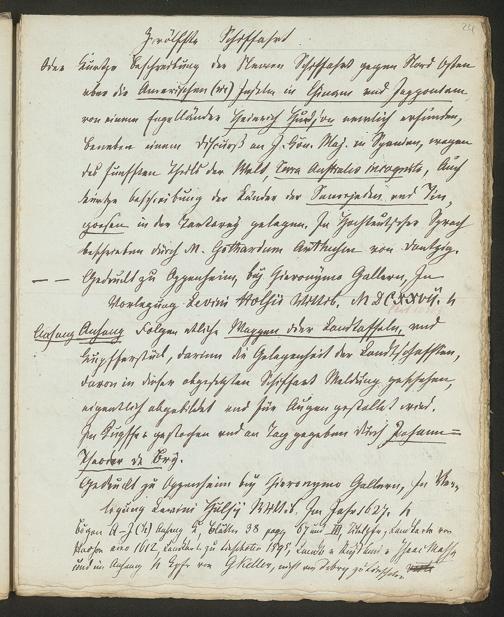 24
Zwölffte Schiffahrt
Oder Kurtze Beschreibung der Newen Schiffahrt gegen Nord Osten
vber die Amerischen (sic) Inseln in Chinam vnd Japponiam
von einem Engelländer Heinrich Hudson newlich erfunden,
beneben einem Discurß an J. Kön. Maj. in Spanien, wegen
des fünfften Theils der Welt, Terra Australis incognita, Auch
kurtze beschreibung der Länder der Samojeden vnd Tin,
goesen in der Tartarey gelegen. In Hochteutscher Sprach
beschrieben durch M. Gothardum Arthusen von Dantzig.
— — Gedruckt zu Oppenheim, bey Hieronymo Gallern, In
Vorlegung Levini Hulsij Wittib. M DC XXVII.
Anfang Anhang Folgen etliche Mappen oder Landtaffeln, vnd
Kupfferstück, darinn die Gelegenheit der Landtschafften,
davon in dieser abgesetzten Schiffart Meldung geschehen,
eigentlich abgebildet und für Augen gestellet wird.
Im Kupffer gestochen vnd an Tag gegeben durch Johann=
Theodor de Bry.
Gedruckt zu Oppenheim bey Hieronymo Gallern, In Ver-
legung Levini Hulsij Wittib. Im Jahr 1627.
Bogen A–J Anhang Blätter 38 pagg. 67 und III
1612
und im Anhang Kpfr. von Keller, nicht von Debry